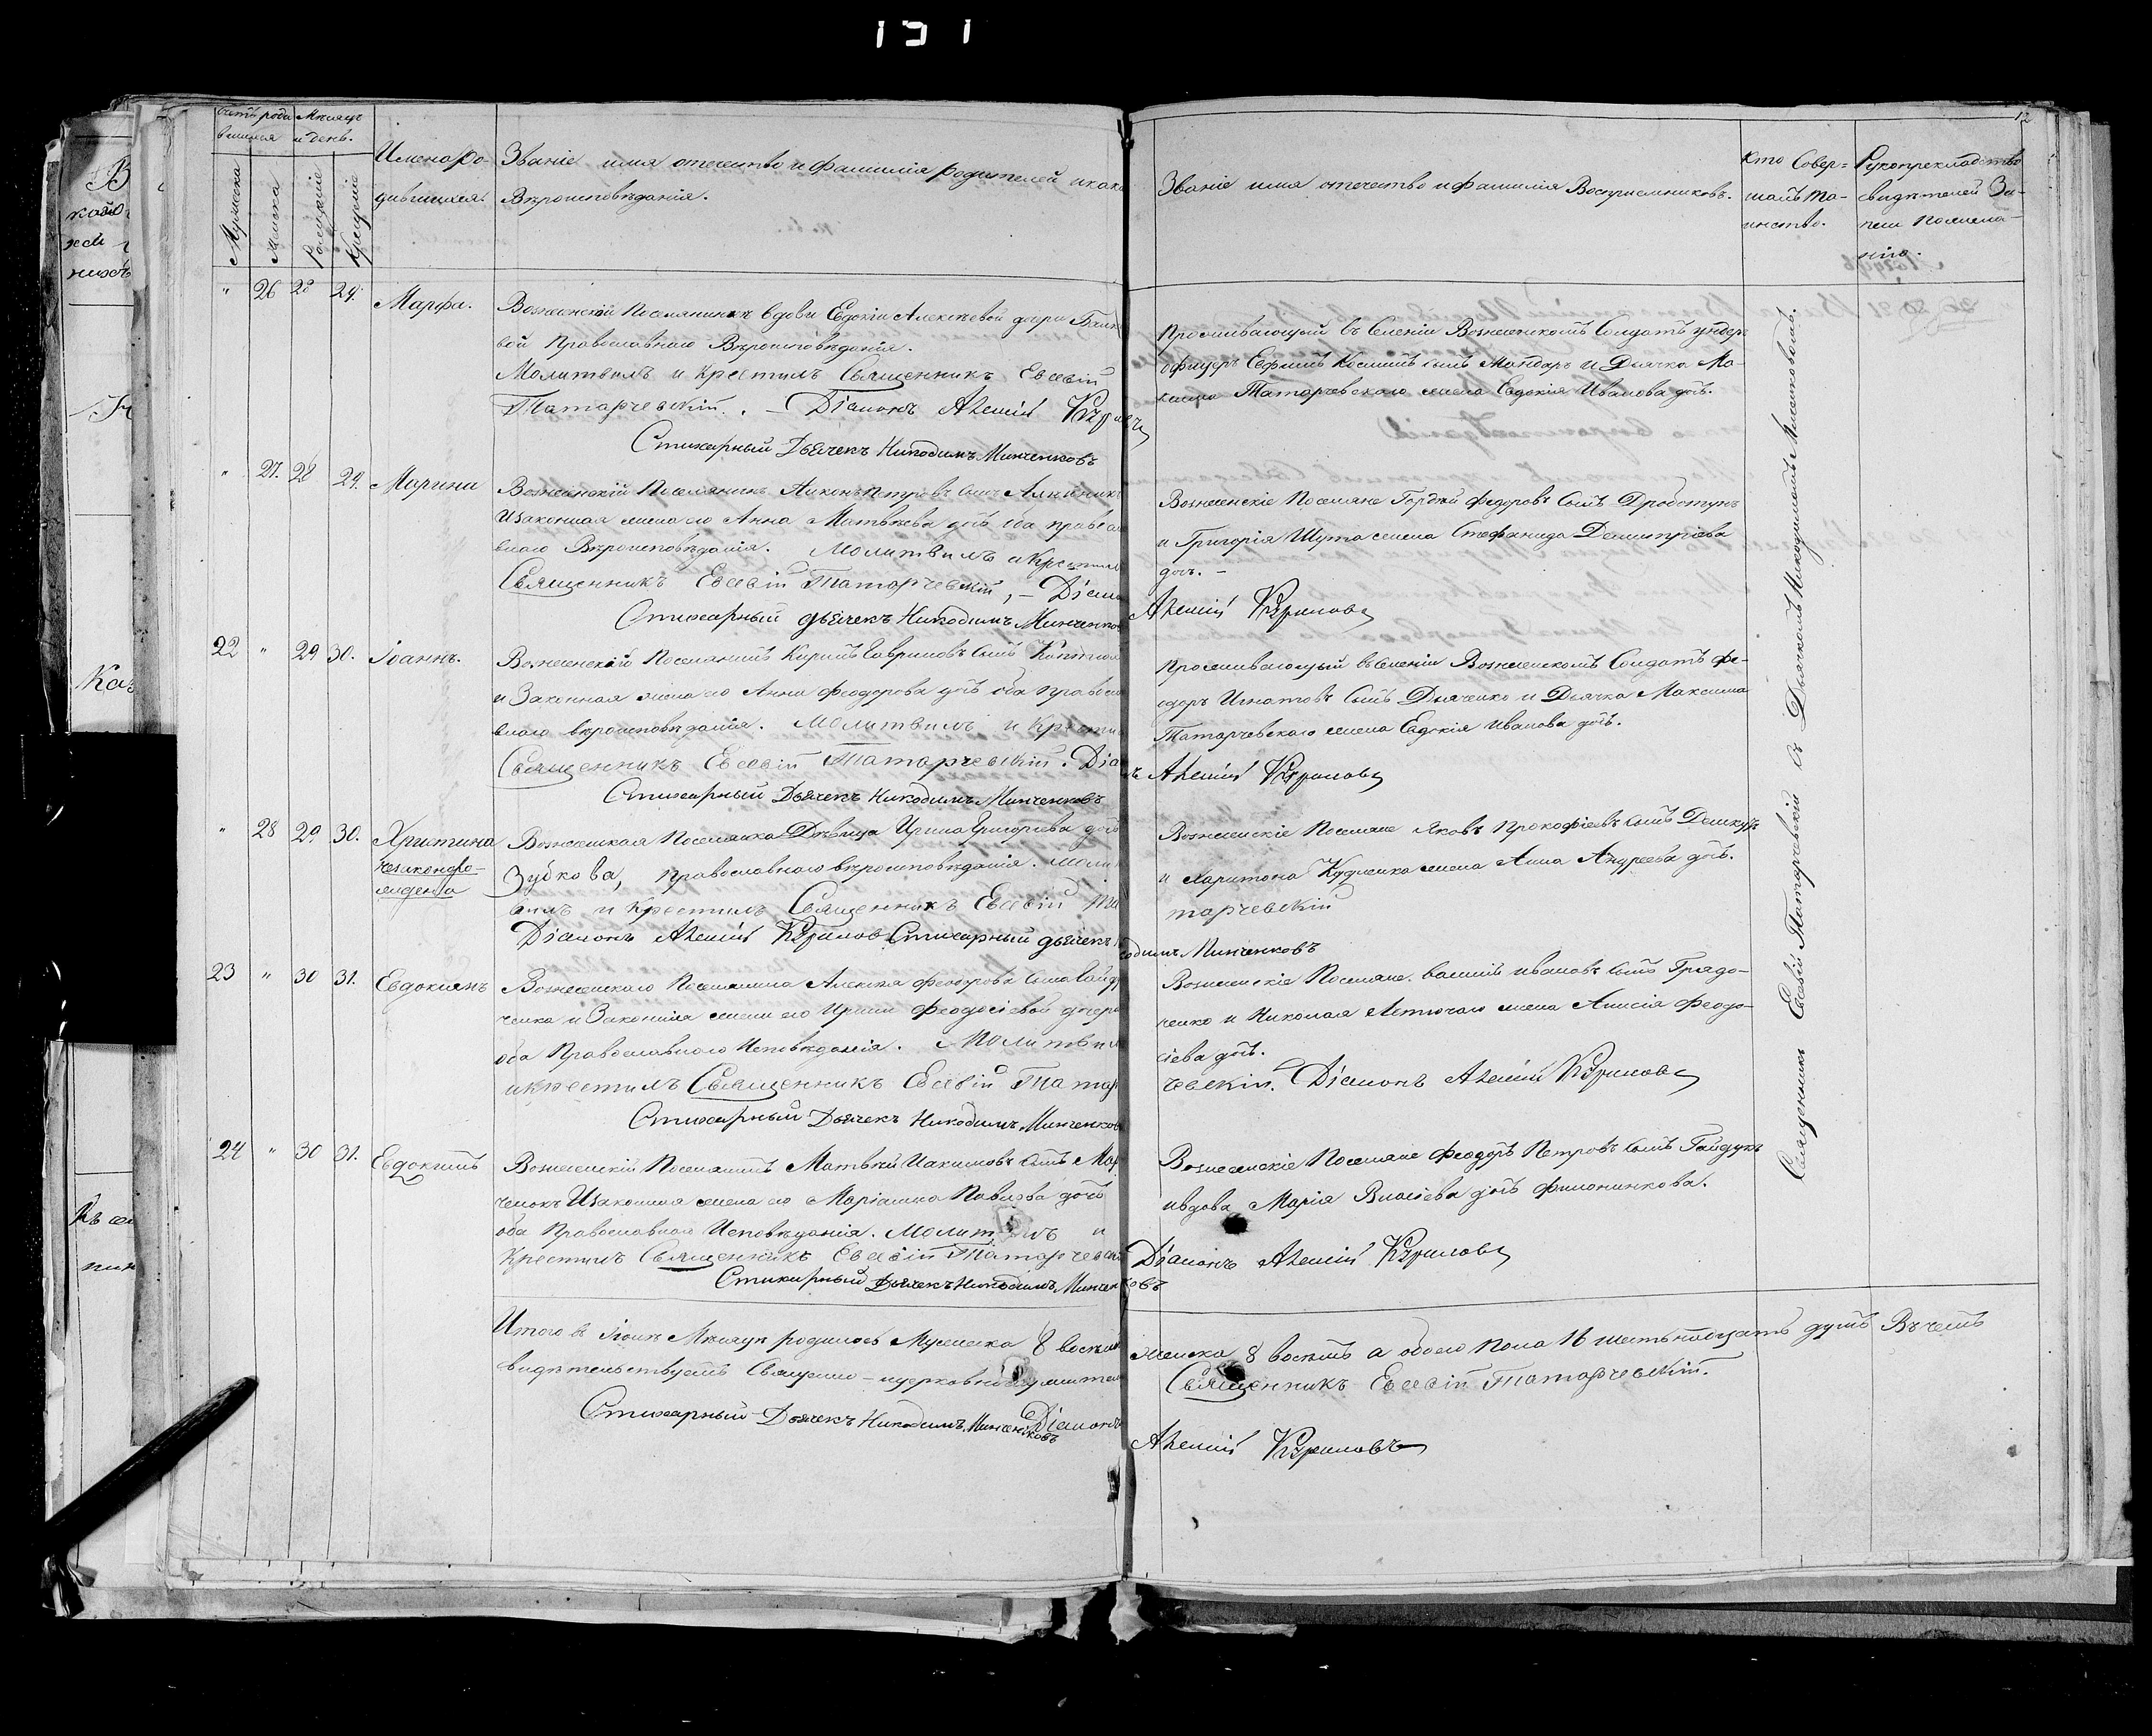 151
12
Счетъ роди Мѣсяцъ
вшихся и день.
Мужеска
Женска
Рожденіе
Крещеніе
Имена ро-
дившихся.
Званіе имя отечество и фамилія родителей и како
Вѣроисповѣданія.
Званіе имя отечество и фамилія Воспріемниковъ.
Кто Совер-
шалъ та-
инство.
Рукоприкладство
свидѣтелей За-
писи по жела-
нію.
" 26 28 29. Марфа.
Вознесенской Поселянинки вдовы Евдокіи Алексѣевой дочри
вой Православнаго Вѣроисповѣданія.
Молитвилъ и Крестилъ Священникъ Евсевій
Татарчевскій. – Діаконъ Алексій Кириловъ
Стихарный Дьячекъ Никодимъ Минченковъ
Проживающый въ Селеніи Вознесенскомъ Солдатъ ундеръ
офицеръ Ефимъ Косминъ сынъ и Дьячка Ма-
ксима Татарчевскаго жена Евдокія Иванова дочь.
" 27. 28 29. Марина
Вознесенскій Поселянинъ Петровъ сынъ
и законная жена его Анна Матвѣева дочь оба правосла
внаго Вѣроисповѣданія. Молитвилъ и Крестилъ
Священникъ Евсевій Татарчевскій, – Діаконъ
Алексій Кириловъ
Стихарный дьячекъ Никодимъ Минченковъ
Вознесенскіе Поселяне Гордѣй Федоровъ Сынъ Дроботунъ
и Григорія Шута жена Стефанида Демитріева
дочь. –
22 " 29 30. Іоаннъ.
Вознесенскій Поселянинъ Кирилъ Гавриловъ Сынъ
и Законная жена его Анна Феодорова дочь оба Правосла
внаго вѣроисповѣданія. Молитвилъ и Крестилъ
Священникъ Евсевій Татарчевскій. Діаконъ Алексій Кириловъ
Стихарный Дьячекъ Никодимъ Минченковъ
Проживающый въ Селеніи Вознесенскомъ Солдатъ Фе-
одоръ Игнатовъ Сынъ Дьяченко и Дьячка Максима
Татарчевскаго жена Евдокія Иванова дочь.
" 28 29 30. Христина
незаконоро-
жденна
Вознесенская Поселянка Дѣвица Ирина Григорьева дочь
Зубкова, православнаго вѣроисповѣданія. Молит
вилъ и Крестилъ Священникъ Евсевій Та
тарчевскій
Діаконъ Алексій Кириловъ Стихарный дьячекъ Никодимъ Минченковъ
Вознесенскіе Поселяне Яковъ Прокофіевъ Сынъ
и Харитона жена Анна Андреева дочь.
23 " 30 31. Евдокимъ
Вознесенскаго Поселянина Алексѣя Феодорова Сына Гайду
ченка и Законныя жены его Ирины Феодосіевой дочери
оба Православнаго Исповѣданія. Молитвилъ
и крестилъ Священникъ Евсевій Татар
чевскій. Діаконъ Алексій Кириловъ
Стихарный Дьячекъ Никодимъ Минченковъ
Вознесенскіе Поселяне. Василій Ивановъ Сынъ
и Николая жена Анисія Феодо-
сіева дочь.
24 " 30 31. Евдокимъ
Вознесенскій Поселянинъ Матвѣй Иакимовъ Сынъ Мар
ченокъ и законная жена его Маріанна Павлова дочь
оба Православнаго Исповѣданія. Молитвилъ и
Крестилъ Священникъ Евсевій Татарчевскій
Діаконъ Алексій Кириловъ
Стихарный Дьячекъ Никодимъ Минченковъ
Вознесенскіе Поселяне Феодоръ Петровъ Сынъ Гайдукъ
и вдова Марія Власіева дочь Филоникова.
Священникъ Евсевій Татарчевскій съ Дьячкомъ Никодимомъ
Итого въ Іюлѣ Мѣсяцѣ родилось Мужеска 8 восемь женска 8 восемь а обоего пола 16 шестьнадцать душъ Въ чемъ
свидѣтельствуемъ Священно-церковнослужители
Священникъ Евсевій Татарчевскій.
Діаконъ Алексій Кириловъ
Стихарный Дьячекъ Никодимъ Минченковъ